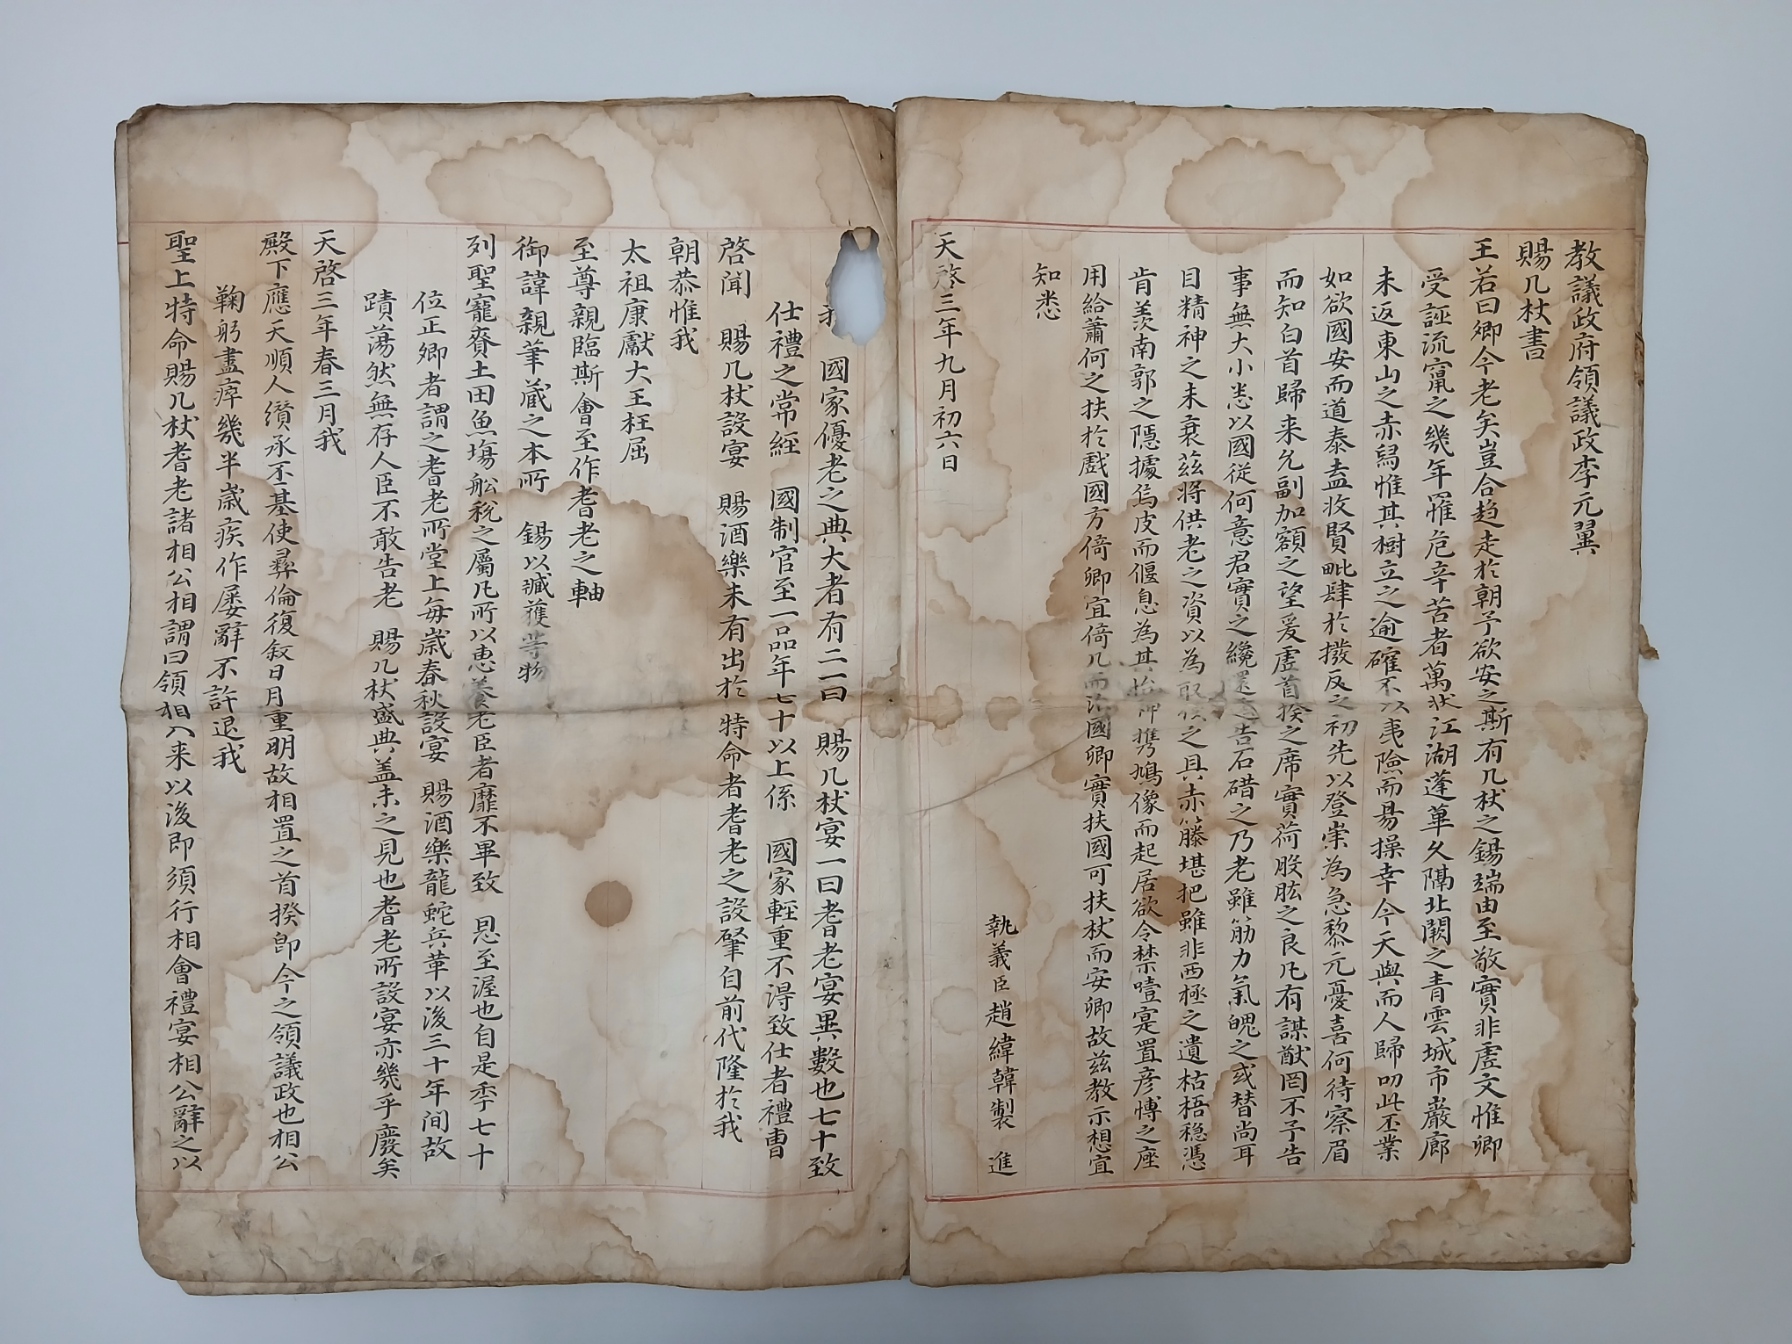 教議政府領議政李元翼
賜几杖書
王若曰卿今老矣豈合趋走於朝予欲安之斯有几杖之錫瑞由至敬實非虛文惟卿
受誣流竄之幾年罹危辛苦者萬狀江湖蓬蓽久隔北闕之青雲城市巖廊
未返東山之赤舃惟其樹立之逾確不以夷險而易操幸今天與而人歸叨此丕業
如欲國安而道泰盍收賢毗肆於撥反之初先以登崇為急黎元憂喜何待察眉
而知白首歸来允副加額之望爰虛首揆之席實荷股肱之良凡有謀猷罔不予告
事無大小悉以國從何意君實之纔還之告石碏之乃老雖筋力氣魄之或替尚耳
目精神之未衰茲將供老之資以為之具赤籐堪把雖非西極之遺枯梧穏憑
肯羡南郭之隱據烏皮而偃息為其怡神携鳩像而起居欲令禁噎寔置彦博之座
用給蕭何之扶於戲國方倚卿宜倚几而國卿實扶國可扶杖而安卿故兹教示想宜
知悉
執義臣趙緯韓製 進
天啓三年九月初六日
我 國家優老之典大者有二一曰 賜几杖宴一曰耆老宴異數也七十致
仕禮之常經 國制官至一品年七十以上係 國家輕重不淂致仕者禮曹
啓聞 賜几杖設宴 賜酒樂未有出於 特命者耆老之設肇自前代隆於我
朝恭惟我
太祖康獻大王枉屈
至尊親臨斯會至作耆老之軸
御諱親筆蔵之本所 錫以臧獲等物
列聖寵賚土田魚塲舩稅之屬凡所以惠養老臣者靡不畢致 恩至渥也自是季七十
位正卿者謂之耆老所堂上每歲春秋設宴 賜酒樂龍蛇兵革以後三十年间故
蹟蕩然無存人臣不敢告老 賜几杖盛典盖未之見也耆老所設宴亦幾乎廢矣
天啓三年春三月我
殿下應天順人纉承丕基使彛倫復叙日月重明故相置之首揆卽今之領議政也相公
鞠躬盡瘁幾半歲疾作屡辭不許退我
聖上特命賜几杖耆老諸相公相謂曰領相入来以後即須行相會禮宴相公辭之以